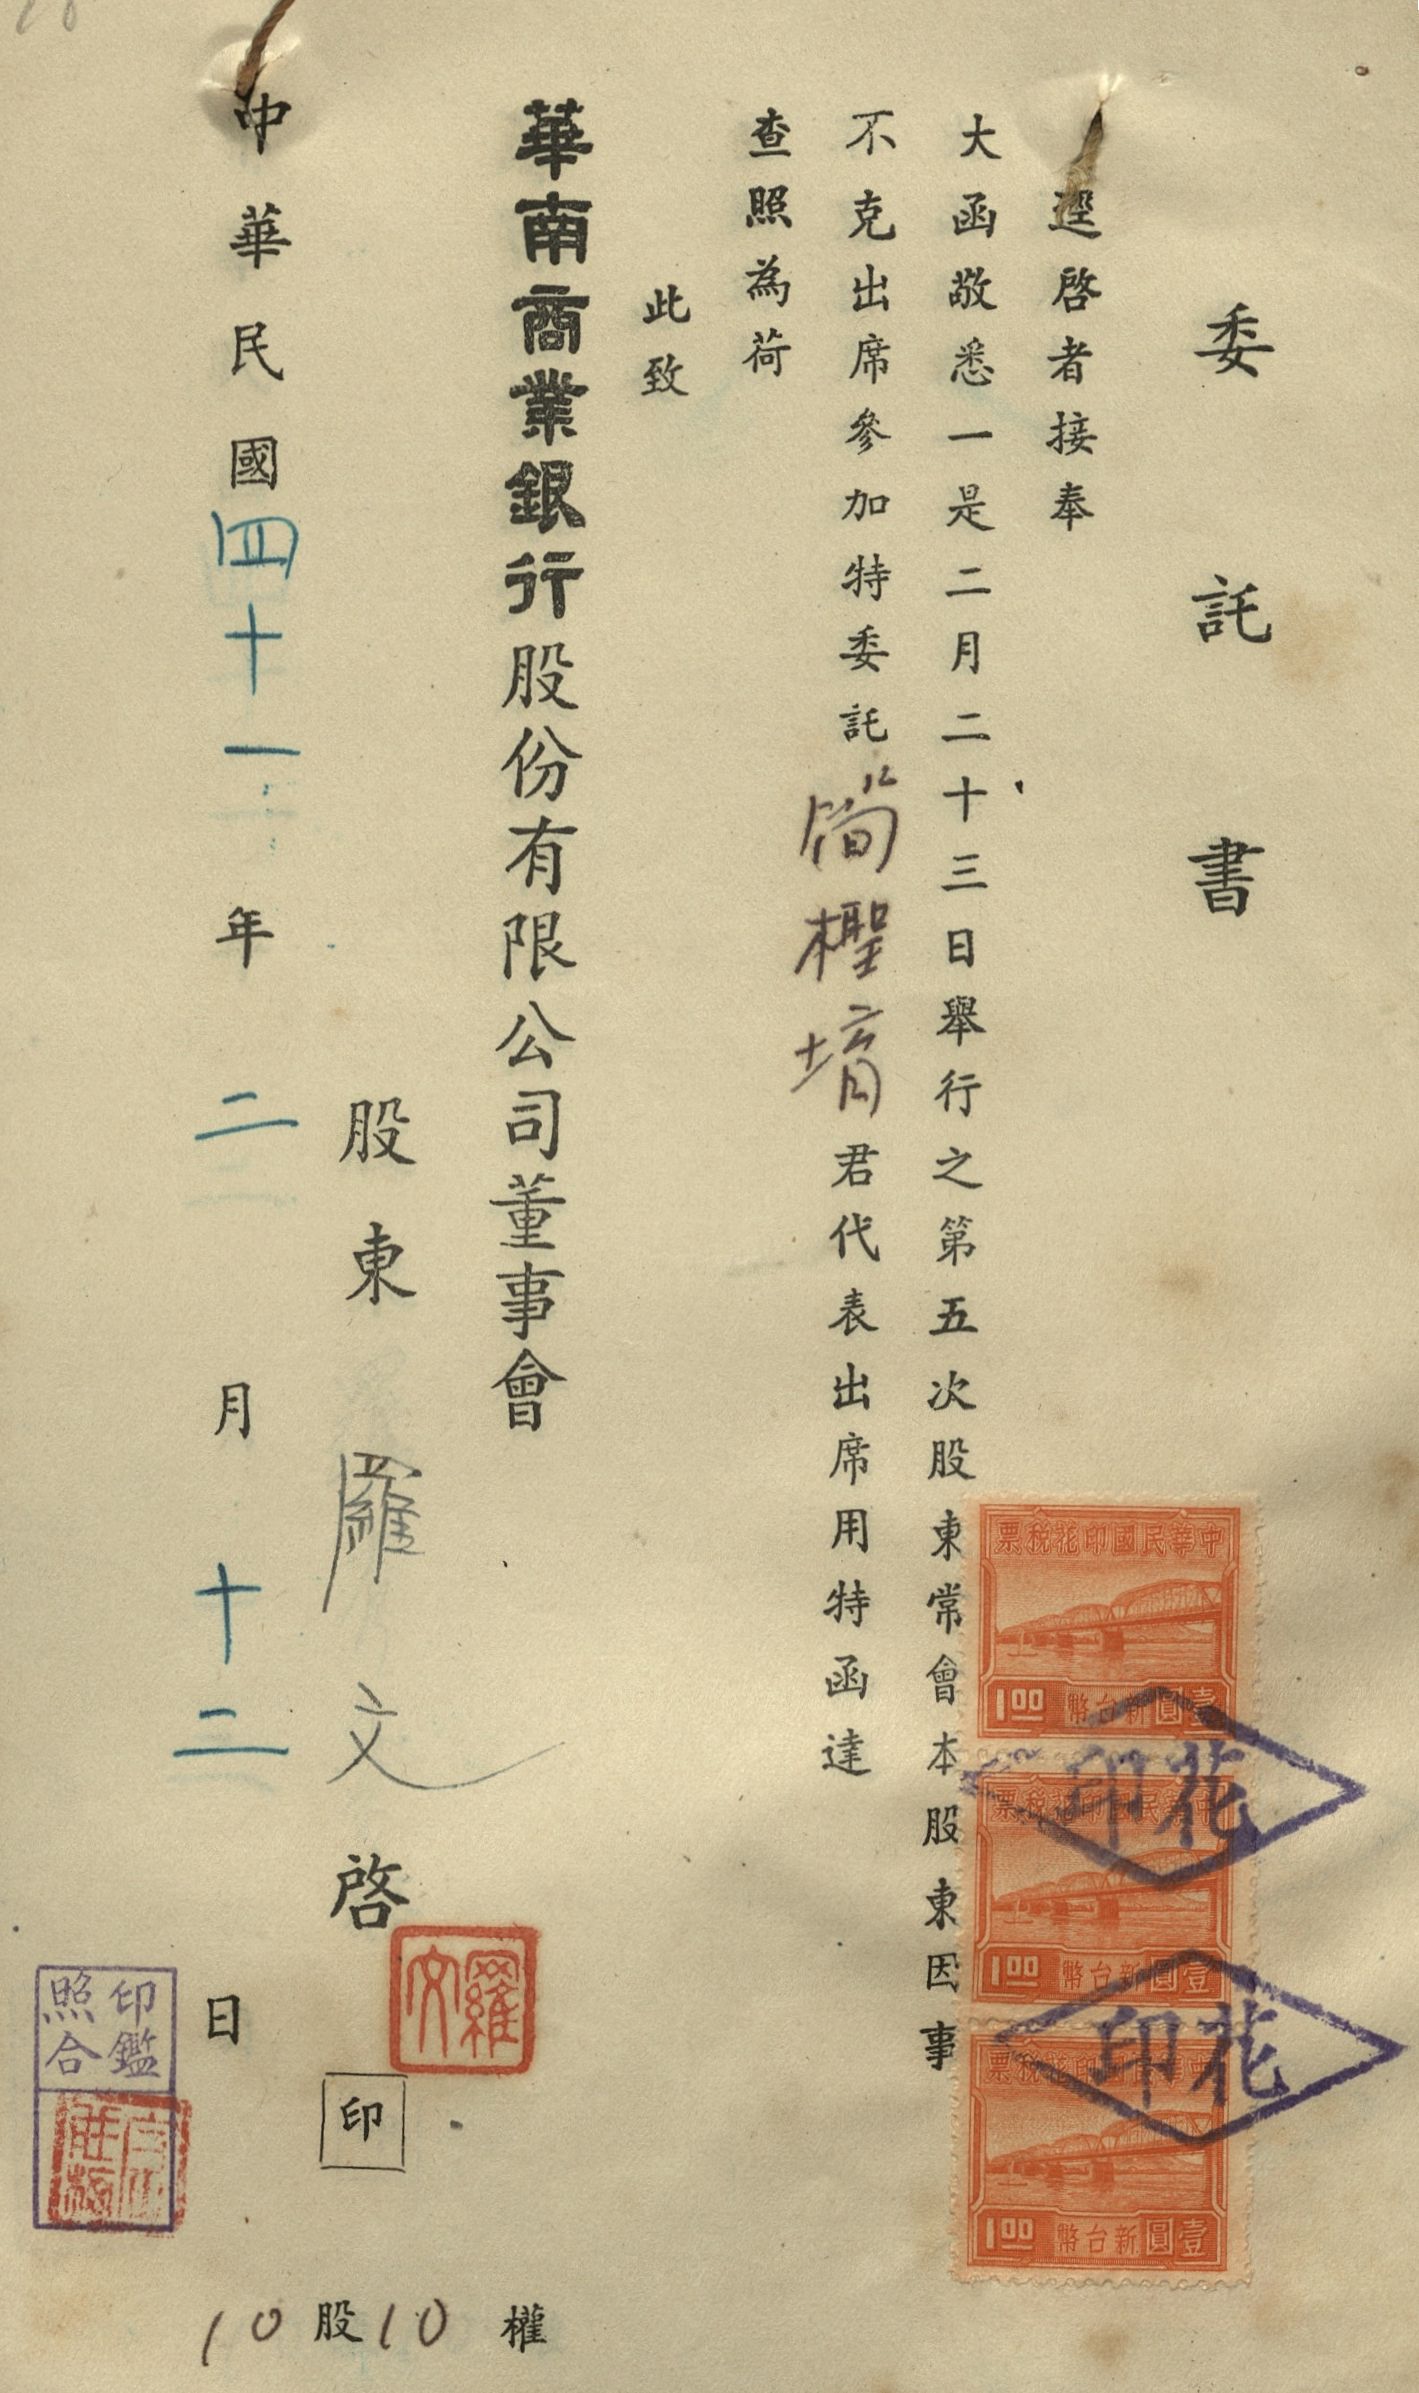 委託書
逕啓者接奉
大函敬悉一是二月二十三日舉行之第五次股東常會本股東因事
不克出席參加特委託簡檉堉君代表出席用特函達
查照為荷
此致
華南商業銀行股份有限公司董事會
股東羅文啓
羅文
印
中華民國四十一年二月十二日
10股10權
印鑑照合
中華民國印花稅票
1.00
壹圓新台幣
中華民國印花稅票
1.00
壹圓新台幣
中華民國印花稅票
1.00
壹圓新台幣
花印
花印